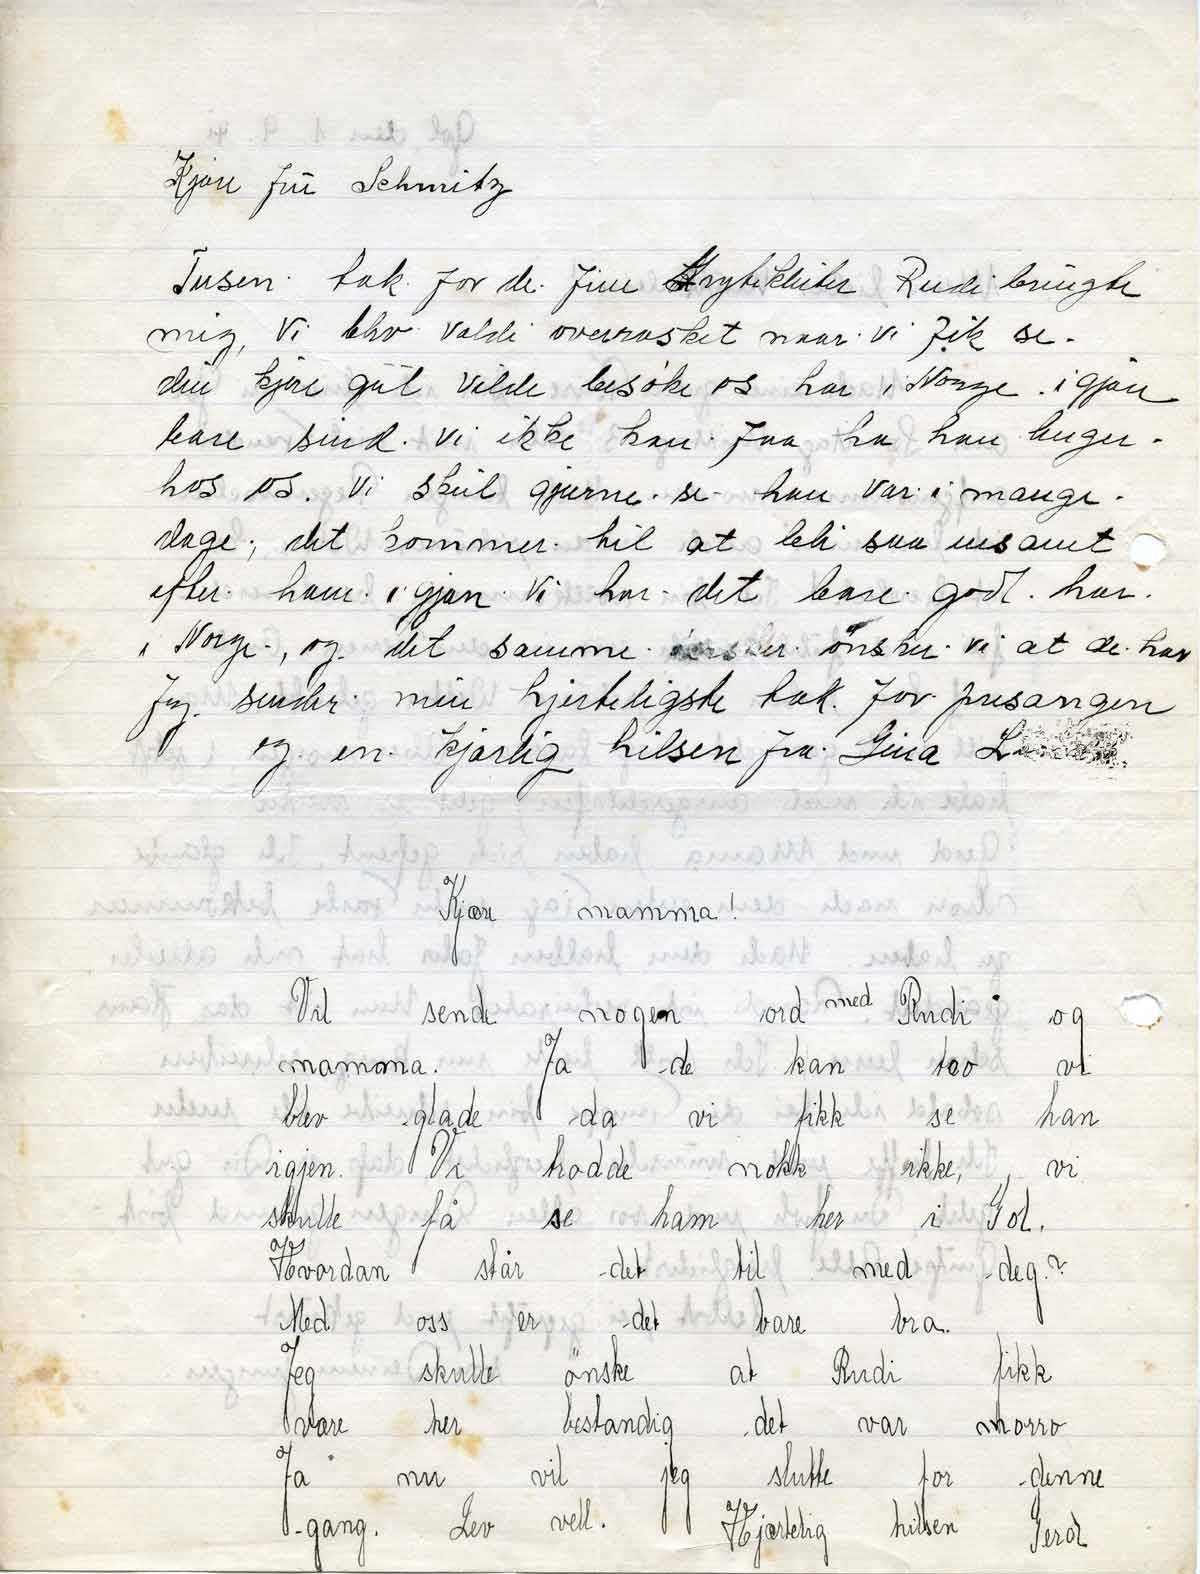 Kjäre frü Schmitz
Tusen tak for de fine Brytekluter Rudi bringte
mig, Vi blev valdi overrasket naar vi fik se
din kjere güt vilde besøke os har i Norge igjän
bare sind vi ikke kan faa ha han lenger
hos os. Vi skül gjerne se han var i mange
dage, det kommer til at bli saa ensamt
efter ham igjän Vi har det bare godt har
i Norge, og det samme önsker vi at de har
Jeg sender min hjerteligste tak for presangen
og en kjärlig hilsen fra Gina
Kjære mamma!
Vil sende nogen ord med Rudi og
mamma. Ja de kan tro vi
blev glade da vi fikk se han
igjen. Vi trodde nokk ikke, vi
skulle få se ham her i Gol.
Hvordan står det til med deg?
Med oss er det bare bra.
Jeg skulle önske at Rudi fikk
være her bestandig det var morro
Ja nu vil jeg slutte for denne
gang. Lev vell. Hjærtelig hilsen Gerd